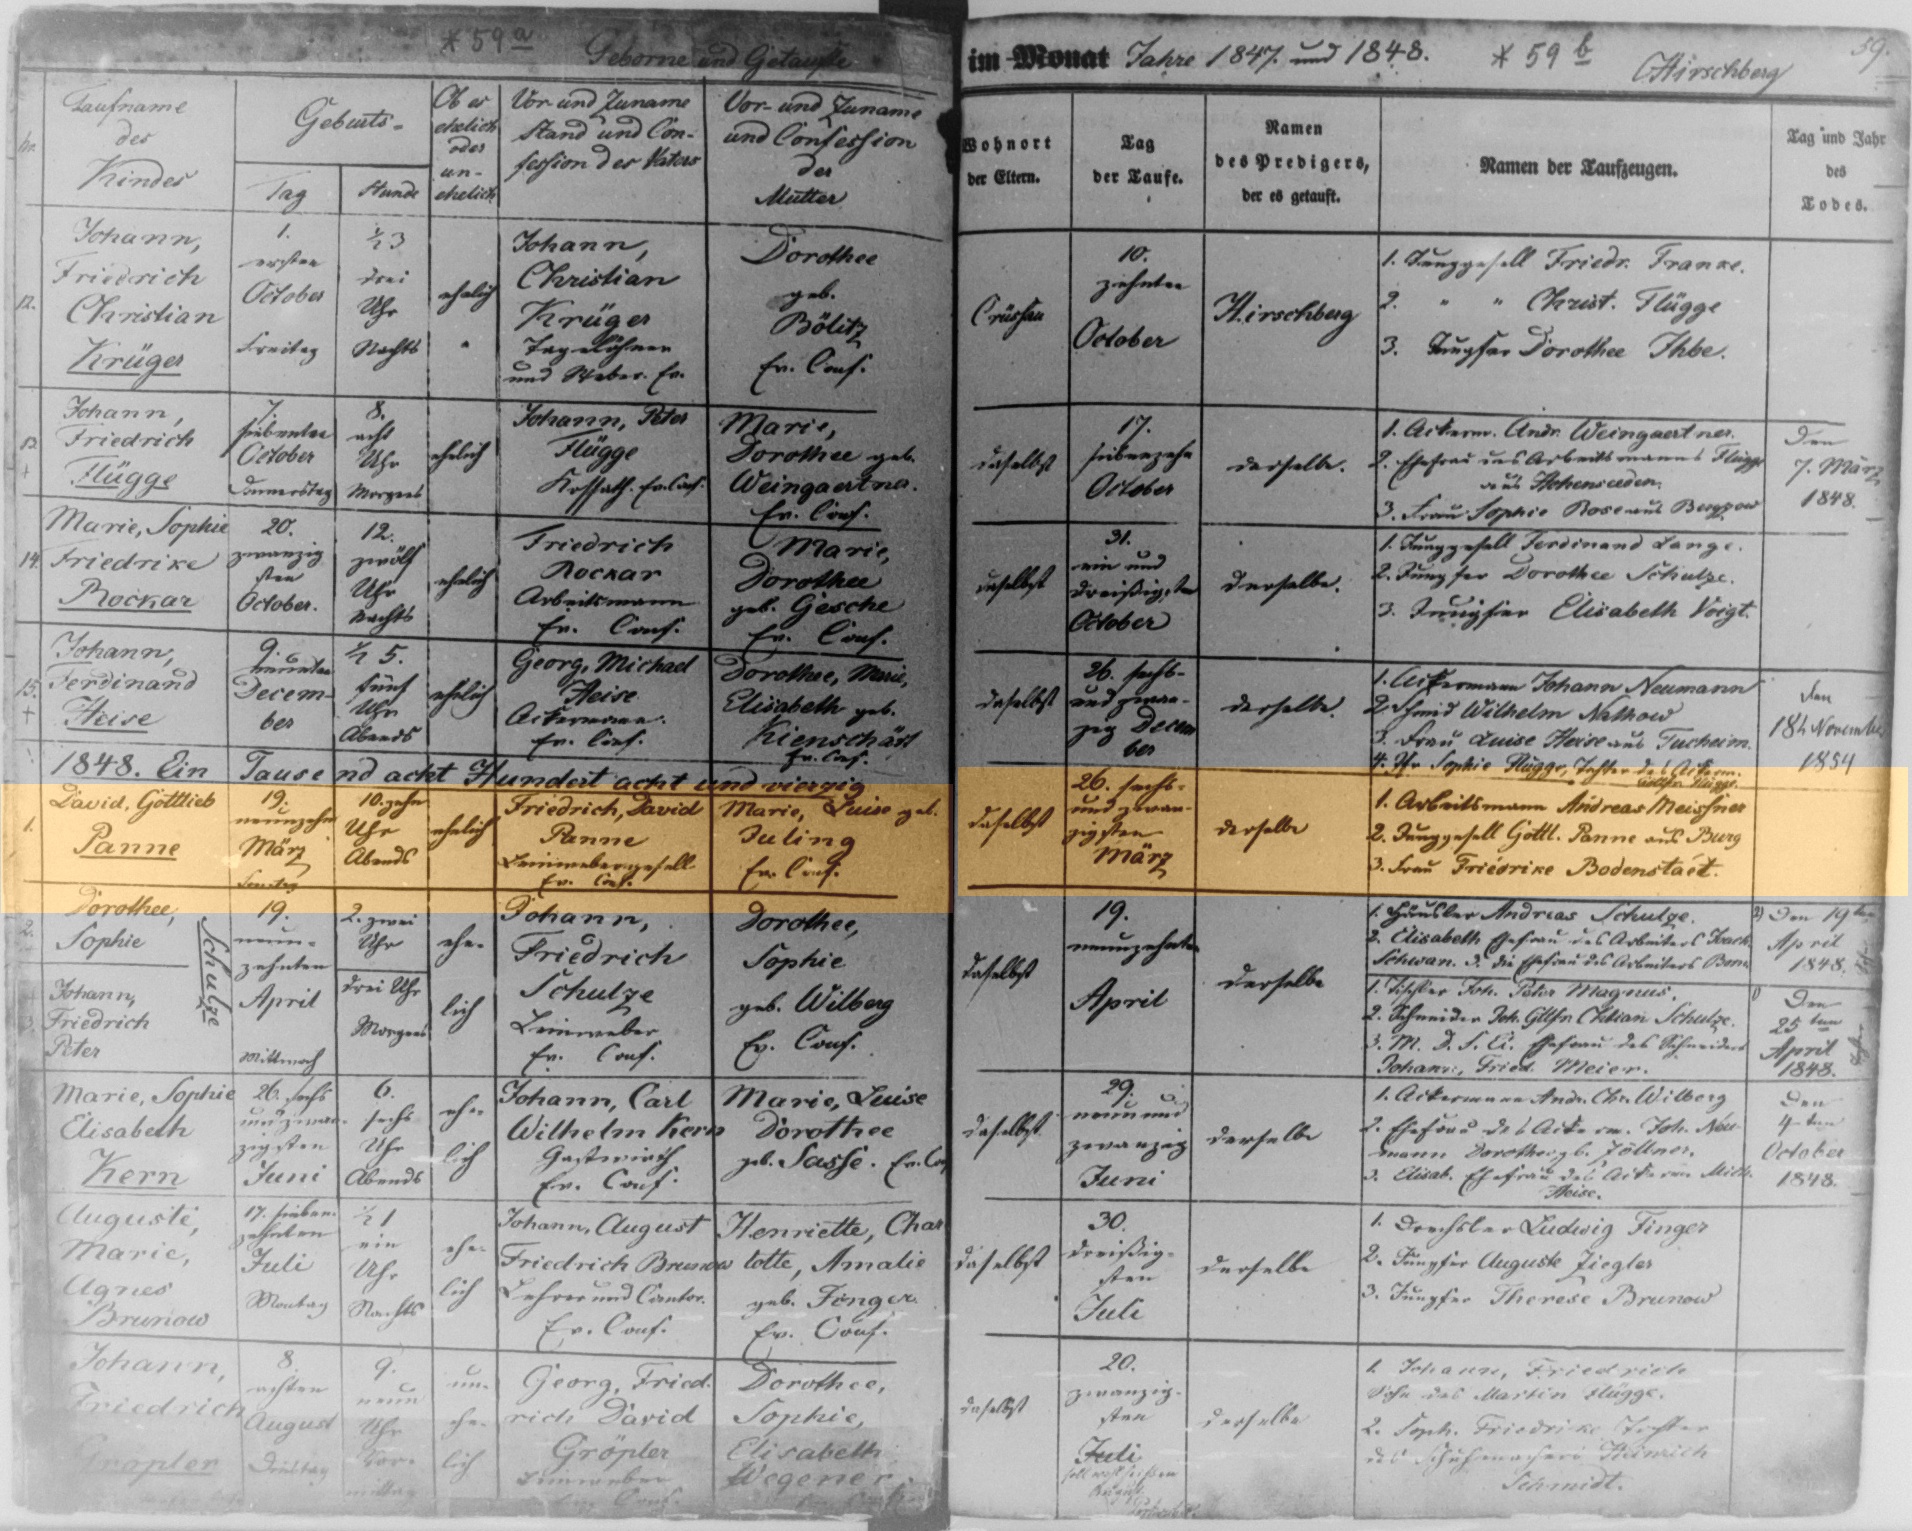 * 59 a
Geborne und Getaufte
im Monat Jahre 1847. und 1848.
* 59 b
CHirschberg
59.
Nr.
Taufname
des
Kindes
Geburts-
Tag
Stunde
Ob es
ehelich
oder
un-
ehelich
Vor- und Zuname
Stand und Con-
fession des Vaters
Vor- und Zuname
und Confession
der
Mutter
Wohnort
der Eltern.
Tag
der Taufe.
Namen
des Predigers,
der es getauft.
Namen der Taufzeugen.
Tag und Jahr
des
Todes.
12.
Johann,
Friedrich
Christian
Krüger
1.
ersten
October
Freitag
½ 3
drei
Uhr
Nachts
ehelich
Johann,
Christian
Krüger
Tagelöhner
und Weber. Ev.
Dorothee
geb.
Bölitz
Ev. Conf.
Crüssau
10.
zehnten
October
Hirschberg
1. Junggesell Friedr. Franke.
2. " " Christ. Flügge
3. Jungfer Dorothee Ihbe.
13
+
Johann,
Friedrich
Flügge
7.
siebenten
October
Donnerstag
8.
acht
Uhr
Morgens
ehelich
Johann, Peter
Flügge
Kossath. Ev. Conf.
Marie,
Dorothee geb.
Weingaertner.
Ev. Conf.
daselbst
17.
siebenzehn
October
derselbe.
1. Ackerm. Andr. Weingaertner.
2. Ehefrau des Arbeitsmanns Flügge
aus Hohenseeden.
3. Frau Sophie Rose aus Bergzow
Den
7. März
1848.
14.
Marie, Sophie
Friedrike
Rockar
20.
zwanzig
sten
October.
12.
zwölf
Uhr
Nachts
ehelich
Friedrich
Rockar
Arbeitsmann
Ev. Conf.
Marie,
Dorothee
geb. Gesche
Ev. Conf.
daselbst
31.
ein und
dreißigsten
October
derselbe.
1. Junggesell Ferdinand Lange.
2. Jungfer Dorothee Schulze.
3. Jungfer Elisabeth Voigt.
15.
+
Johann,
Ferdinand
Heise
9.
neunten
Decem-
ber
½ 5.
fünf
Uhr
Abends
ehelich
Georg, Michael
Heise
Ackermann.
Ev. Conf.
Dorothee, Marie,
Elisabeth geb.
Kienschärf
Ev. Conf.
daselbst
26. sechs-
und zwan-
zig Decem
ber
derselbe.
1. Ackermann Johann Neumann
2. Schmid Wilhelm Nathow
3. Frau Luise Heise aus Tucheim.
4. Jfr Sophie Flügge, Tochter des Ackerm.
Gottfr. Flügge.
den
18t November
1854
1848. Ein Tausend acht Hundert acht und vierzig
1.
David, Gottlieb
Panne
19.
neunzehn
März
Sonntag
10. zehn
Uhr
Abends
ehelich
Friedrich, David
Panne
Leinwebergesell.
Ev. Conf.
Marie, Luise geb.
Juling
Ev. Conf.
daselbst
26. sechs-
und zwan-
zigsten
März
derselbe
1. Arbeitsmann Andreas Meissner
2. Junggesell Gottl. Panne aus Burg
3. Frau Friedrike Bodenstaet.
2.
Dorothee,
Sophie
Schulze
3.
Johann,
Friedrich
Peter
19.
neun-
zehnten
April
Mittwoch
2. zwei
Uhr
drei Uhr
Morgens
ehe-
lich
Johann,
Friedrich
Schulze
Leinweber
Ev. Conf.
Dorothee,
Sophie
geb. Wilberg
Ev. Conf.
daselbst
19.
neunzehnten
April
derselbe
1. Häusler Andreas Schulze.
2. Elisabeth Ehefrau des Arbeiters Joach.
Schwan. 3. die Ehefrau des Arbeiters
1. Tischler Joh. Peter Magnus.
2. Schneider Joh. Gttfr. Chstian Schulze.
3. M. D. S. Ehefrau des Schneiders
Johann, Fried. Meier.
2) Den 19ten
April
1848.
1) Den
25ten
April
1848.
Marie, Sophie
Elisabeth
Kern
26. sechs
und zwan-
zigsten
Juni
6.
sechs
Uhr
Abends
ehe-
lich
Johann, Carl
Wilhelm Kern
Gastwirth
Ev. Conf.
Marie, Luise
Dorothee
geb. Sasse. Ev. Con
daselbst
29.
neun und
zwanzig
Juni
derselbe
1. Ackermann Andr. Chr. Wilberg
2. Ehefrau des Ackerm. Joh. Neu-
mann Dorothee gb. Zöllner.
3. Elisab. Ehefrau des Ackerm. Mich.
Heise.
Den
4ten
October
1848.
Auguste,
Marie,
Agnes
Brunow
17. sieben-
zehnten
Juli
Montag
½ 1
ein
Uhr
Nachts
ehe-
lich
Johann, August
Friedrich Brunow
Lehrer und Cantor.
Ev. Conf.
Henriette, Char
lotte, Amalie
geb. Finger.
Ev. Conf.
daselbst
30.
dreißig-
sten
Juli
derselbe
1. Drechsler Ludwig Finger
2. Jungfer Auguste Ziegler
3. Jungfer Therese Brunow
Johann,
Friedrich
Gröpler
8.
achten
August
Dienstag
9.
neun
Uhr
Vor-
mittag
un-
ehe-
lich
Georg, Fried-
rich David
Gröpler
Leinweber
Ev. Conf.
Dorothee,
Sophie,
Elisabeth
Wegener.
daselbst
20.
zwanzig-
sten
Juli
soll wohl heißen
August
derselbe
1. Johann, Friedrich
Sohn des Martin Flügge.
2. Soph. Friedrike Tochter
des Schuhmachers Heinrich
Schmidt.